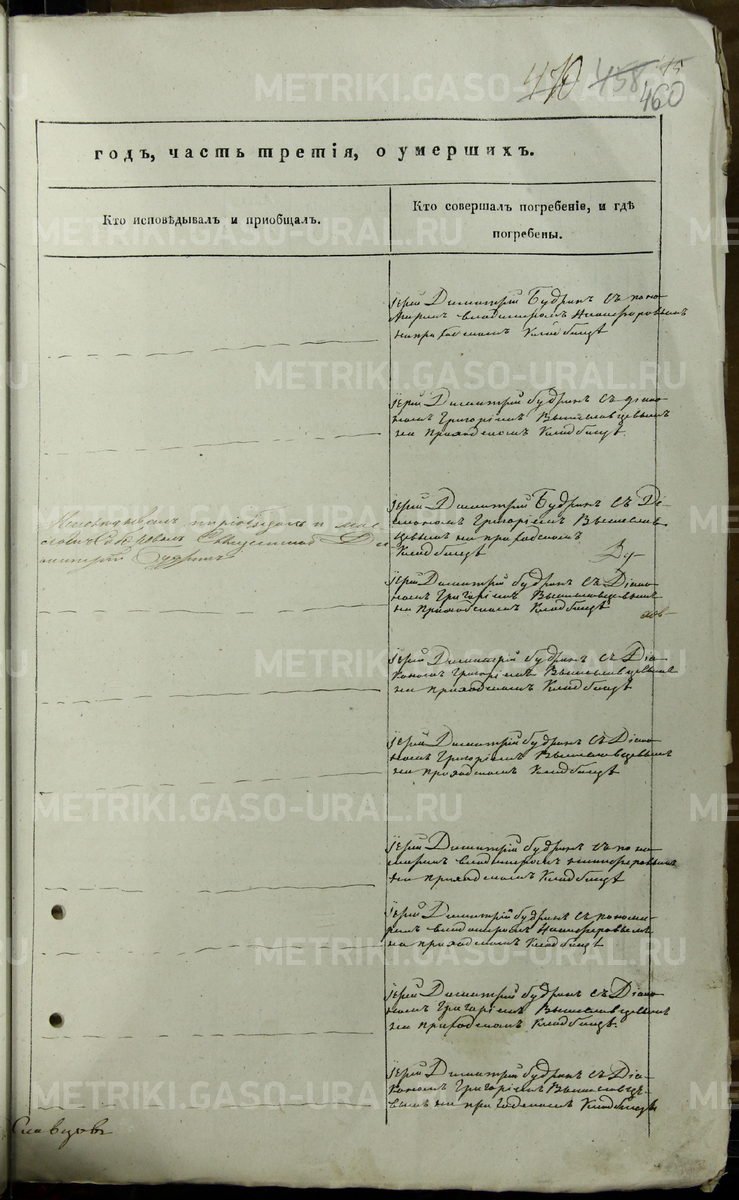 470 458 15
460
годъ, часть третія, о умершихъ.
Кто исповѣдывалъ и пріобщалъ.
Кто совершалъ погребеніе, и гдѣ
погребены.
Іерей Димитрій Будринъ съ поно
маремъ Владиміромъ Никифоровымъ
на приходскомъ кладбищѣ
Іерей Димитрій Будринъ съ діако
номъ Григоріемъ Вышеславцевымъ
на приходскомъ кладбищѣ.
Исповѣдывалъ
Священникъ Ди
митрій Будринъ
Іерей Димитрій Будринъ съ Ді
акономъ Григоріемъ Вышеслав
цевымъ на приходскомъ
кладбищѣ
Іерей Димитрій Будринъ съ Діако
номъ Григоріемъ Вышеславцевымъ
на приходскомъ кладбищѣ
Іерей Димитрій Будринъ съ Діа
кономъ Григоріемъ Вышеславцевымъ
на приходскомъ кладбищѣ
Іерей Димитрій Будринъ съ Діако
номъ Григоріемъ Вышеславцевымъ
на приходскомъ кладбищѣ
Іерей Димитрій Будринъ съ поно
маремъ Владиміромъ Никифоровымъ
на приходскомъ кладбищѣ
Іерей Димитрій Будринъ съ понома
ремъ Владиміромъ Никифоровымъ
на приходскомъ кладбищѣ
Іерей Димитрій Будринъ съ Діако
номъ Григоріемъ Вышеславцевымъ
на приходскомъ кладбищѣ.
Іерей Димитрій Будринъ съ Діа
кономъ Григоріемъ Вышеславце
вымъ на приходскомъ кладбищѣ
METRIKI.GASO-URAL.RU